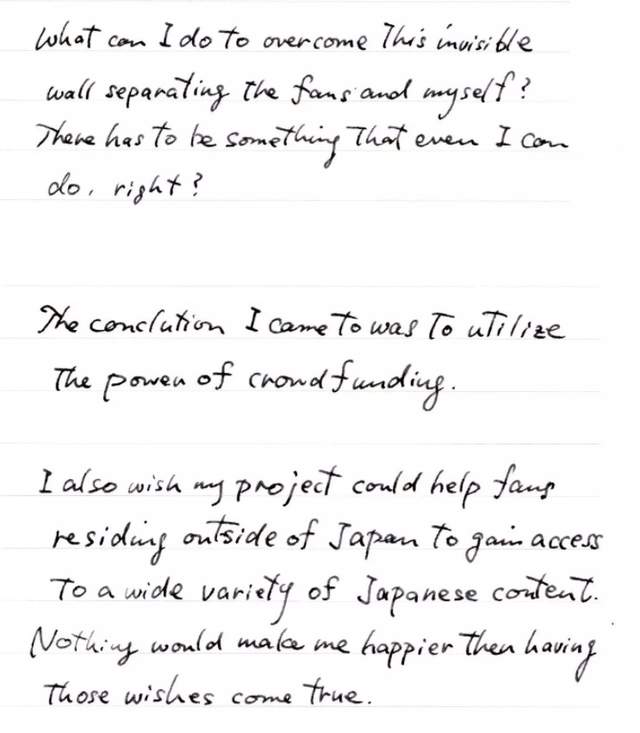 What can I do to overcome This invisible
wall separating the fans and myself?
There has to be something That even I can
do, right?
The conclution I came To was To utilize
The power of crowdfunding.
I also wish my project could help fans
residing outside of Japan to gain access
To a wide variety of Japanese content.
Nothing would make me happier then having
Those wishes come true.